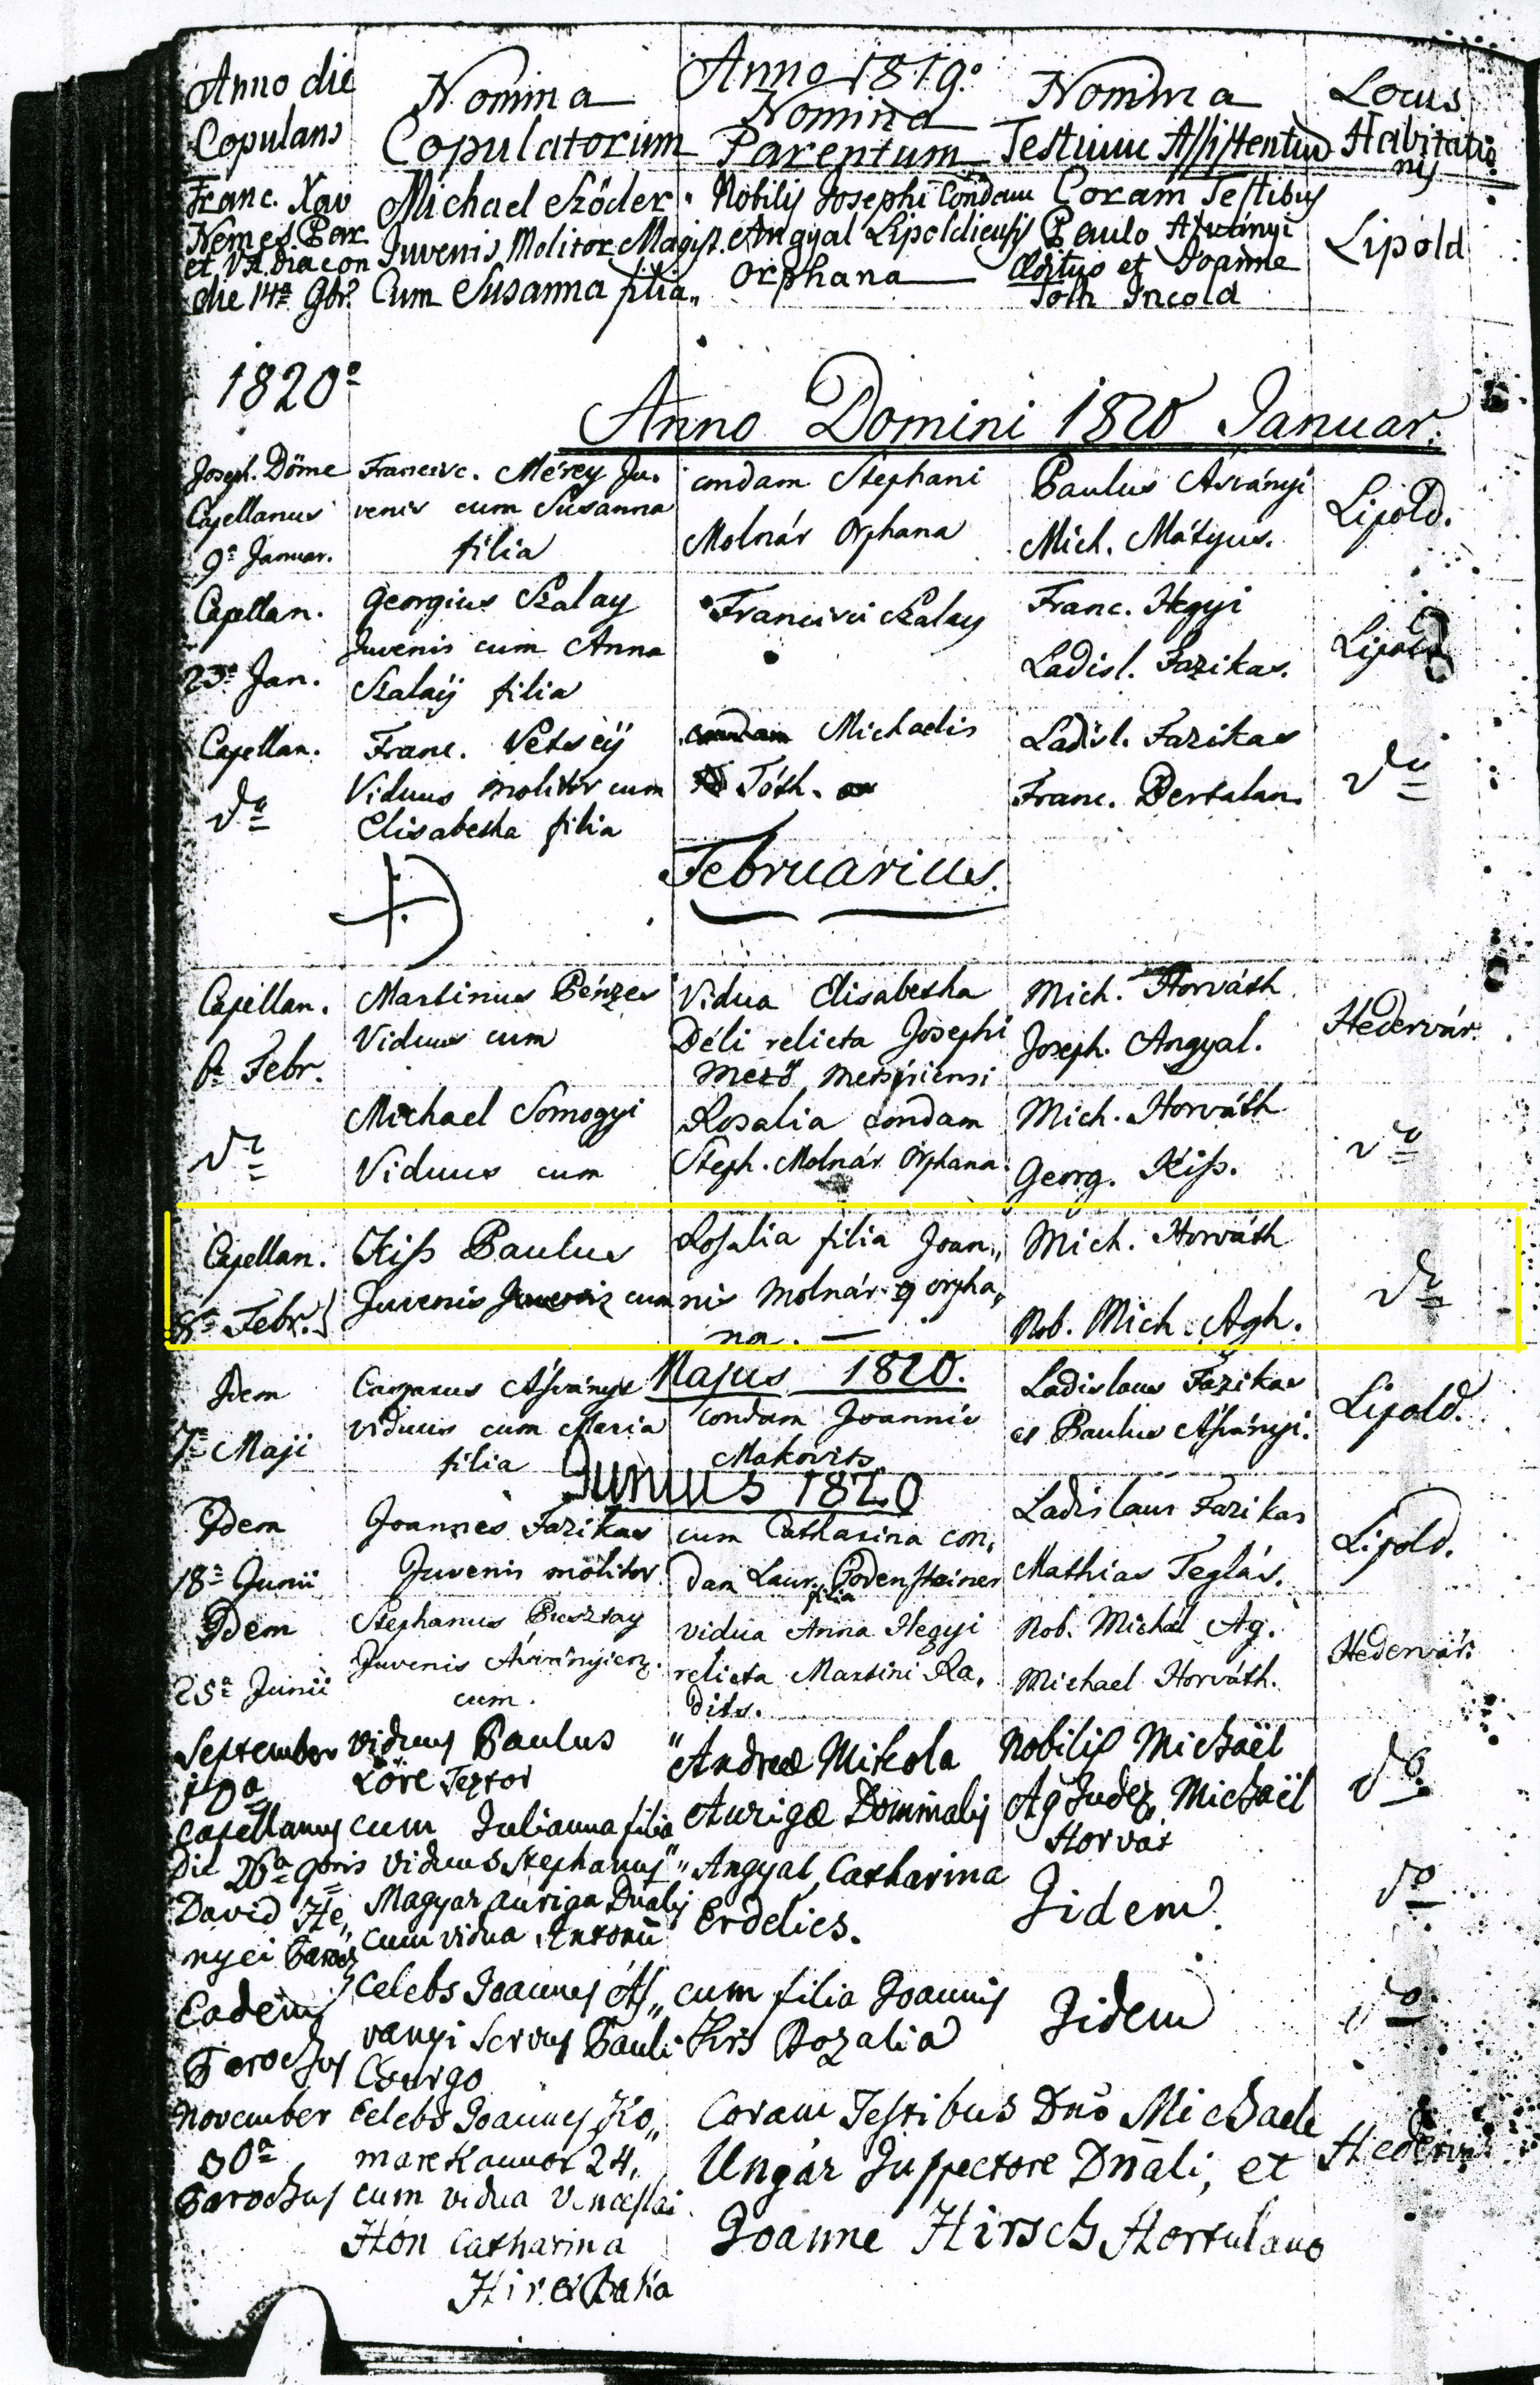 Anno 1819.
Anno die Copulans
Nomina Copulatorum
Nomina Parentum
Nomina Testium Assistentium
Locus Habitationis
Franc. Xav
Nemes Par.
et V. A. Diacon
die 14a 9br.
Michael Szöder
Juvenis Molitor Magist.
Cum Susanna filia
Nobilis Josephi Condam
Angyal Lipoldiensis
Orphana
Coram Testibus
Paulo Asványi
et Joanne
Toth Incola
Lipold
1820
Anno Domini 1820 Januar.
Joseph. Döme
Capellanus
9a Januar.
Francisc. Mérey Ju-
venis cum Susanna
filia
condam Stephani
Molnár Orphana
Paulus Asványi
Mich. Mátyus.
Lipold.
Capellan.
23a Jan.
Georgius Szalay
Juvenis cum Anna
Szalaÿ filia
Francisci Szalay
Franc. Hegyi
Ladisl. Fazikas.
Lipold
Capellan.
do
Franc. Vetseÿ
Viduus molitor cum
Elisabetha filia
Michaelis
Tóth.
Ladisl. Fazikas
Franc. Bertalan.
do
Februarius.
Capellan.
6a Febr.
Martinus Pénzes
Viduus cum
Vidua Elisabetha
Déli relicta Josephi
Mező
Mich. Horváth
Joseph. Angyal.
Hedervár.
do
Michael Somogyi
Viduus cum
Rosalia condam
Steph. Molnár Orphana.
Mich. Horváth
Georg. Kiss.
do
Capellan.
8a Febr.
Kiss Paulus
Juvenis Juvenis cum
Rosalia filia Joan-
nis Molnár orpha-
na. —
Mich. Horváth
Nob. Mich. Agh.
do
Majus 1820.
Idem
7a Maji
Casparus Asványi
viduus cum Maria
filia
condam Joannis
Makovits
Ladislaus Fazikas
et Paulus Asványi.
Lipold.
Junius 1820
Idem
18a Junii
Joannes Fazikas
Juvenis molitor
cum Catharina con-
dam Laur. Podensteiner
filia
Ladislaus Fazikas
Mathias Teglás.
Lipold.
Idem
25a Junii
Stephanus Pusztay
Juvenis Asványiens.
cum.
vidua Anna Hegyi
relicta Martini Ra-
dits.
Nob. Michal Ag.
Michael Horváth.
Hedervár.
September
10a
Capellanus
viduus Paulus
Löre Textor
cum Julianna filia
Andreæ Mikola
Aurigæ Dominalis
Nobilis Michaël
Ag Judex, Michaël
Horvát
do
Die 26a 9bris
David He-
nyei Paroch
viduus Stephanus
Magyar auriga Dnalis
cum vidua Antonii
Angyal, Catharina
Erdelics.
Iidem
do
Eadem
Parochus
Celebs Joannes As-
vanyi Servus Pauli
Csurgo
cum filia Joannis
Kiss Rozalia
Iidem
do
November
30a
Parochus
Celebs Joannes Ko-
marek annor 24.
cum vidua Vinceslai
Hon Catharina
Coram Testibus Dno Michaele
Ungár Inspectore Dnali, et
Joanne Hirsch Hortulano
Hedervár